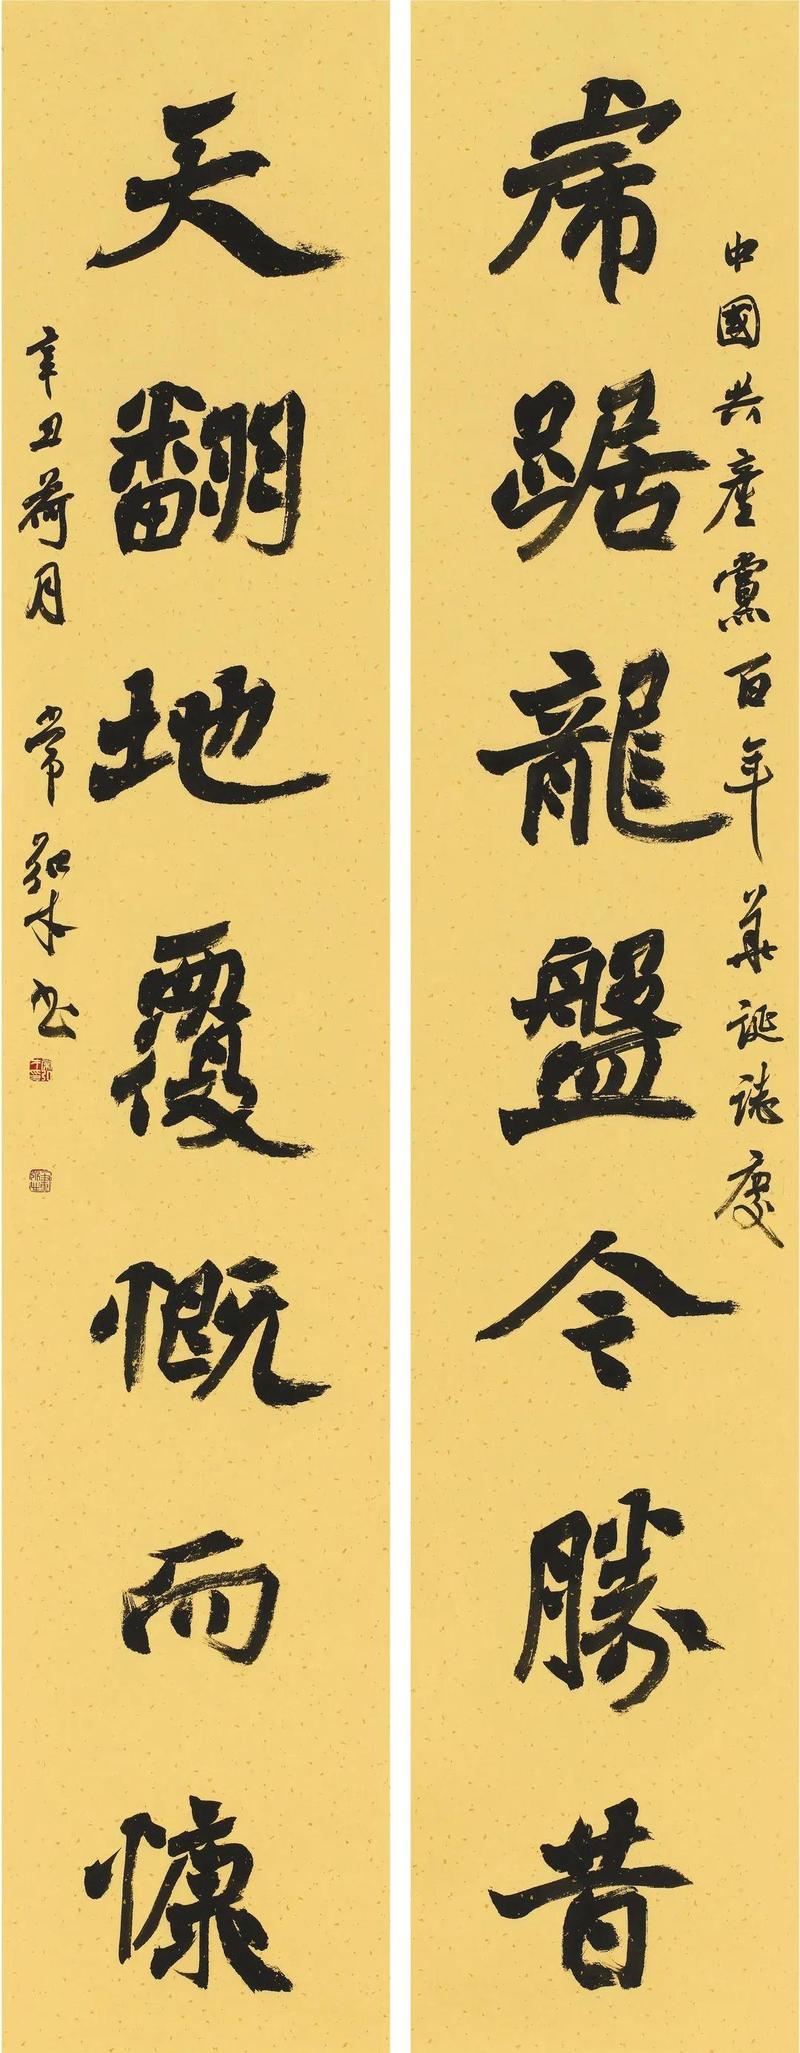 中國共產黨百年華誕誌慶
虎踞龍盤今勝昔
天翻地覆慨而慷
辛丑荷月 常弘本书